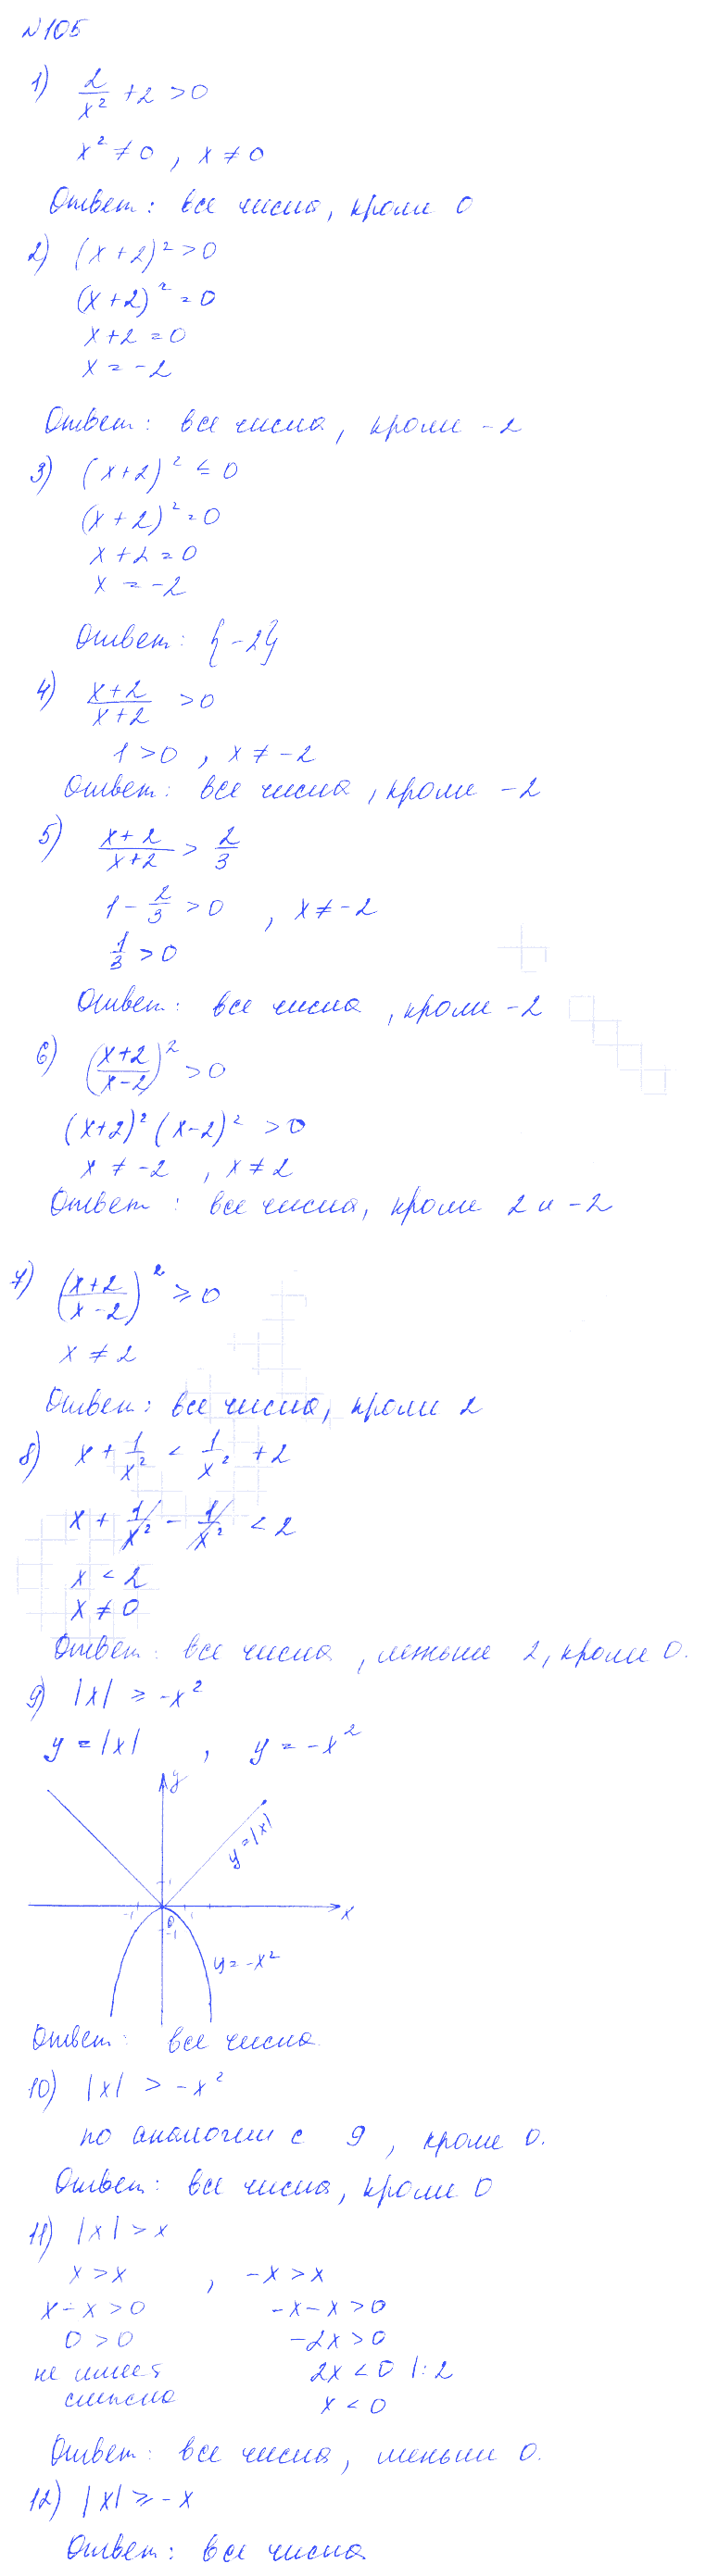 №105
1) 2/x² + 2 > 0
x² ≠ 0, x ≠ 0
Ответ: все числа, кроме 0
2) (x+2)² > 0
(x+2)² = 0
x+2 = 0
x = -2
Ответ: все числа, кроме -2
3) (x+2)² ≤ 0
(x+2)² = 0
x+2 = 0
x = -2
Ответ: {-2}
4) (x+2)/(x+2) > 0
1 > 0, x ≠ -2
Ответ: все числа, кроме -2
5) (x+2)/(x+2) > 2/3
1 - 2/3 > 0, x ≠ -2
1/3 > 0
Ответ: все числа, кроме -2
6) ((x+2)/(x-2))² > 0
(x+2)² (x-2)² > 0
x ≠ -2, x ≠ 2
Ответ: все числа, кроме 2 и -2
7) ((x+2)/(x-2))² ≥ 0
x ≠ 2
Ответ: все числа, кроме 2
8) x + 1/x² < 1/x² + 2
x + 1/x² - 1/x² < 2
x < 2
x ≠ 0
Ответ: все числа, меньше 2, кроме 0.
9) |x| ≥ -x²
y = |x|, y = -x²
y
y = |x|
1
-1 0 1 x
-1
y = -x²
Ответ: все числа.
10) |x| > -x²
по аналогии с 9, кроме 0.
Ответ: все числа, кроме 0
11) |x| > x
x > x, -x > x
x - x > 0 -x - x > 0
0 > 0 -2x > 0
не имеет 2x < 0 |:2
смысла x < 0
Ответ: все числа, меньше 0.
12) |x| ≥ -x
Ответ: все числа